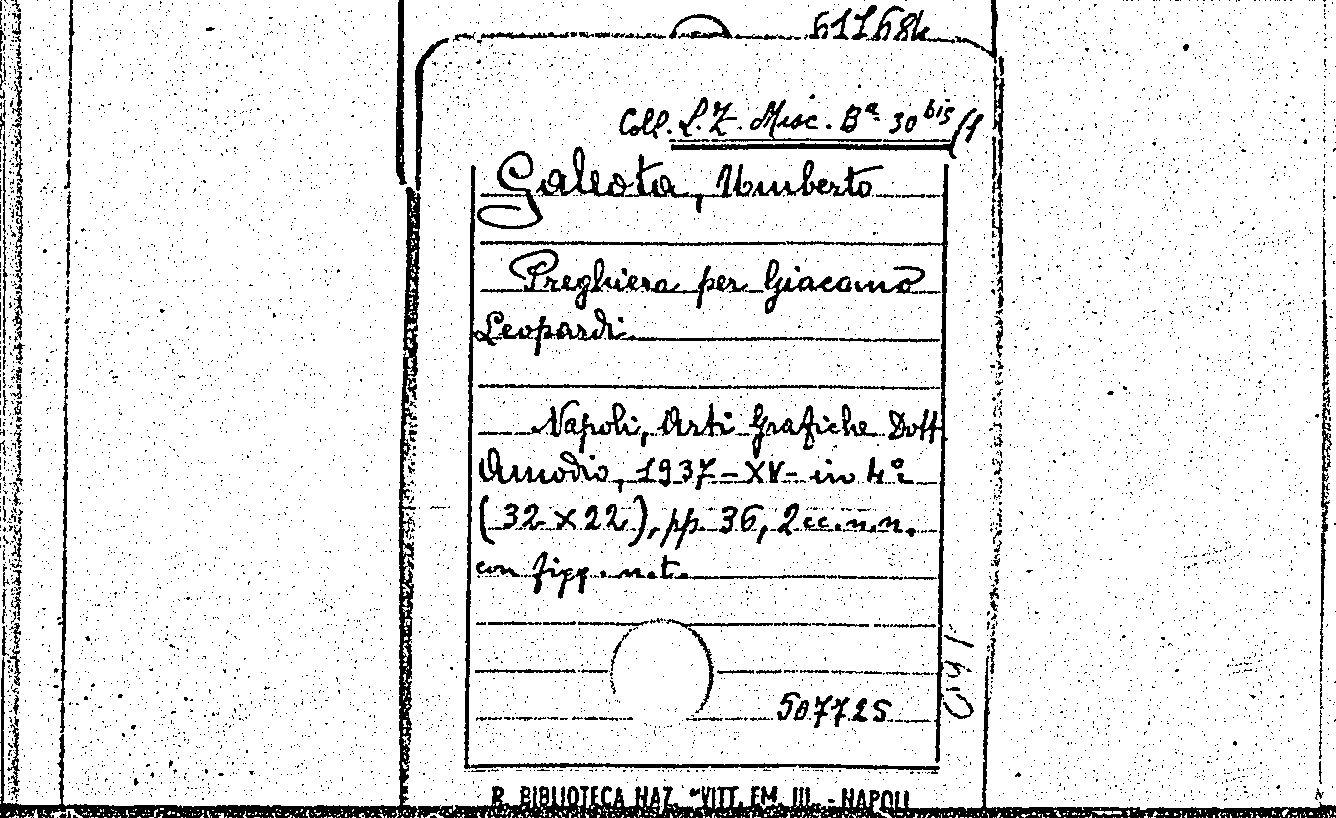 Coll. L.Z. Misc. Bª 30 bis/
Galeota, Umberto
Preghiera per Giacomo
Leopardi
Napoli, Arti Grafiche Dott.
Amodio, 1937-XV- in 4º
(32 x 22), pp. 36, 2 cc. n.n.
con figg. n.t.
507725
R. BIBLIOTECA NAZ. "VITT. EM. III. - NAPOLI